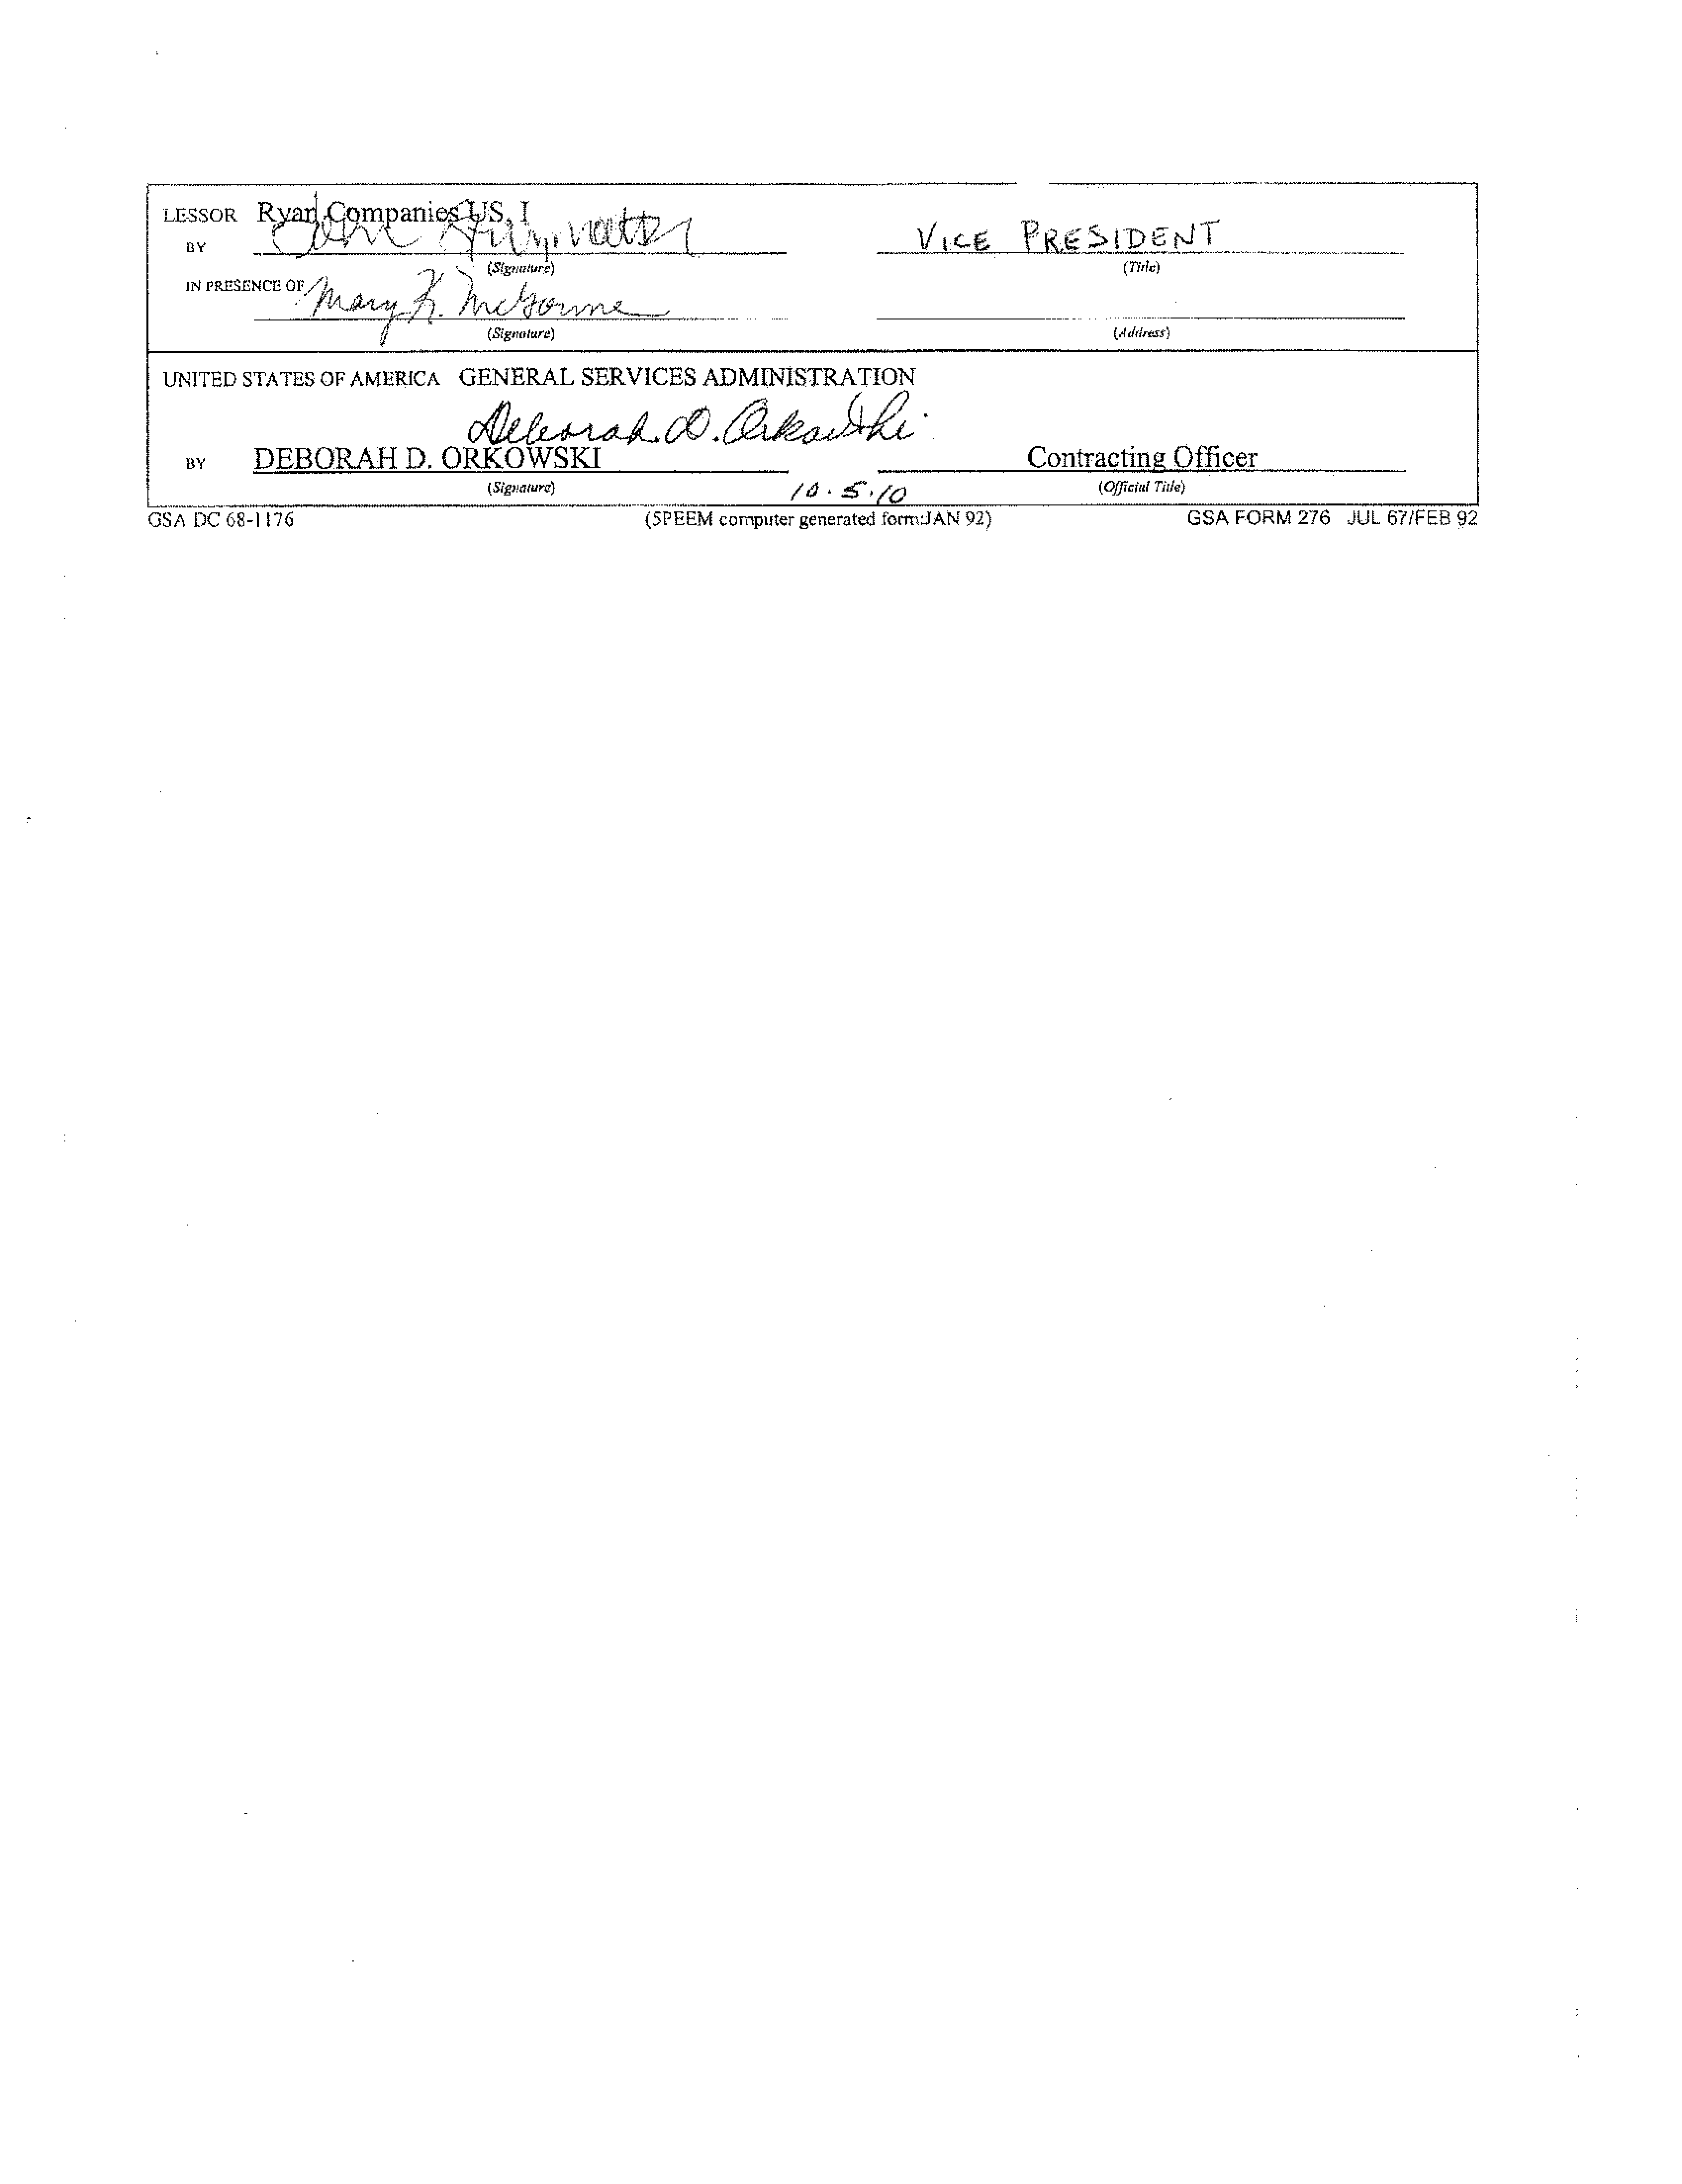 LESSOR Ryan Companies US, I
BY VICE PRESIDENT
(Signature) (Title)
IN PRESENCE OF Mary K.
(Signature) (Address)
UNITED STATES OF AMERICA GENERAL SERVICES ADMINISTRATION
Deborah D. Orkowski
BY DEBORAH D. ORKOWSKI Contracting Officer
(Signature) 10.5.10 (Official Title)
GSA DC 68-1176 (5PEEM computer generated form:JAN 92) GSA FORM 276 JUL 67/FEB 92